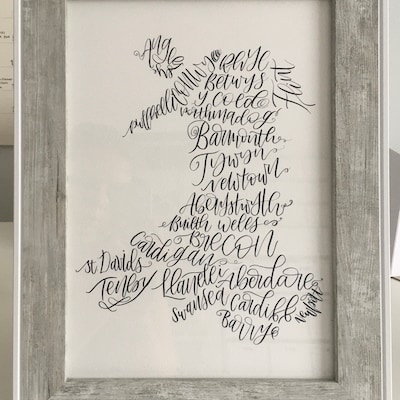 Anglesey
Conwy
Rhyl
Flint
Betwys
y coed
Pwllheli
Porthmadog
Barmouth
Tywyn
Newtown
Aberystwyth
Builth wells
Brecon
Cardigan
St Davids
Tenby
Llanelli
Aberdare
Swansea
Cardiff
Newport
Barry